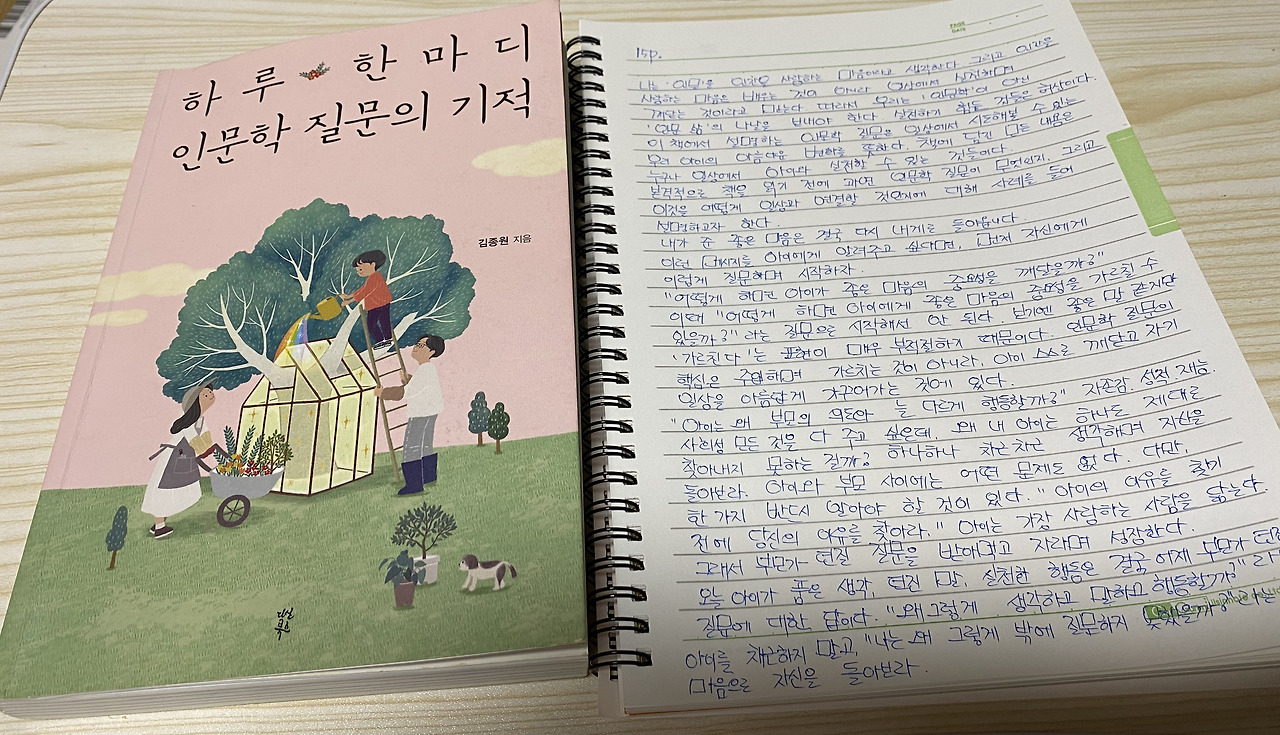 하루 한마디
인문학 질문의 기적
김종원 지음
다산북스
PAGE
DATE
15p.
나는 '인문'을 인간을 사랑하는 마음이라고 생각한다. 그리고 인간을
사랑하는 마음은 배우는 것이 아니라 일상에서 실천하며
깨닫는 것이라고 믿는다. 따라서 우리는 '인문학'이 아닌
'인문 삶'의 나날을 보내야 한다. 실천하지 않는 것들은 허상이다.
이 책에서 설명하는 인문학 질문은 일상에서 시도해볼 수 있는
우리 아이의 아름다운 변화를 뜻한다. 책에 담긴 모든 내용은
누구나 일상에서 아이와 실천할 수 있는 것들이다.
본격적으로 책을 읽기 전에 과연 인문학 질문이 무엇인지, 그리고
이것을 어떻게 일상과 연결할 것인지에 대해 사례를 들어
설명하고자 한다.
내가 준 좋은 마음은 결국 다시 내게로 돌아옵니다.
이런 메시지를 아이에게 알려주고 싶다면, 먼저 자신에게
이렇게 질문하며 시작하자.
"어떻게 하면 아이가 좋은 마음의 중요성을 깨달을까?"
이때 "어떻게 하면 아이에게 좋은 마음의 중요성을 가르칠 수
있을까?"라는 질문으로 시작해선 안 된다. 보기엔 좋은 말 같지만
'가르친다'는 표현이 매우 부적절하기 때문이다. 인문학 질문의
핵심은 주입하며 가르치는 것이 아니라, 아이 스스로 깨닫고 자기
일상을 아름답게 가꾸어가는 것에 있다.
"아이는 왜 부모의 의도와 는 다르게 행동할까?" 자존감, 성적, 재능,
사회성 모든 것을 다 주고 싶은데, 왜 내 아이는 하나도 제대로
찾아내지 못하는 걸까? 하나하나 차근차근 생각하며 자신을
돌아보라. 아이와 부모 사이에는 어떤 문제도 없다. 다만,
한 가지 반드시 알아야 할 것이 있다. "아이의 이유를 찾기
전에 당신의 이유를 찾아라." 아이는 가장 사랑하는 사람을 닮는다.
그래서 부모가 던진 질문을 받아먹고 자라며 성장한다.
오늘 아이가 품은 생각, 던진 말, 실천한 행동은 결국 어제 부모가 던진
질문에 대한 답이다. "왜 그렇게 생각하고 말하고 행동할까?"라
아이를 채근하지 말고, "나는 왜 그렇게 밖에 질문하지 못했을까?"라는
마음으로 자신을 돌아보라.